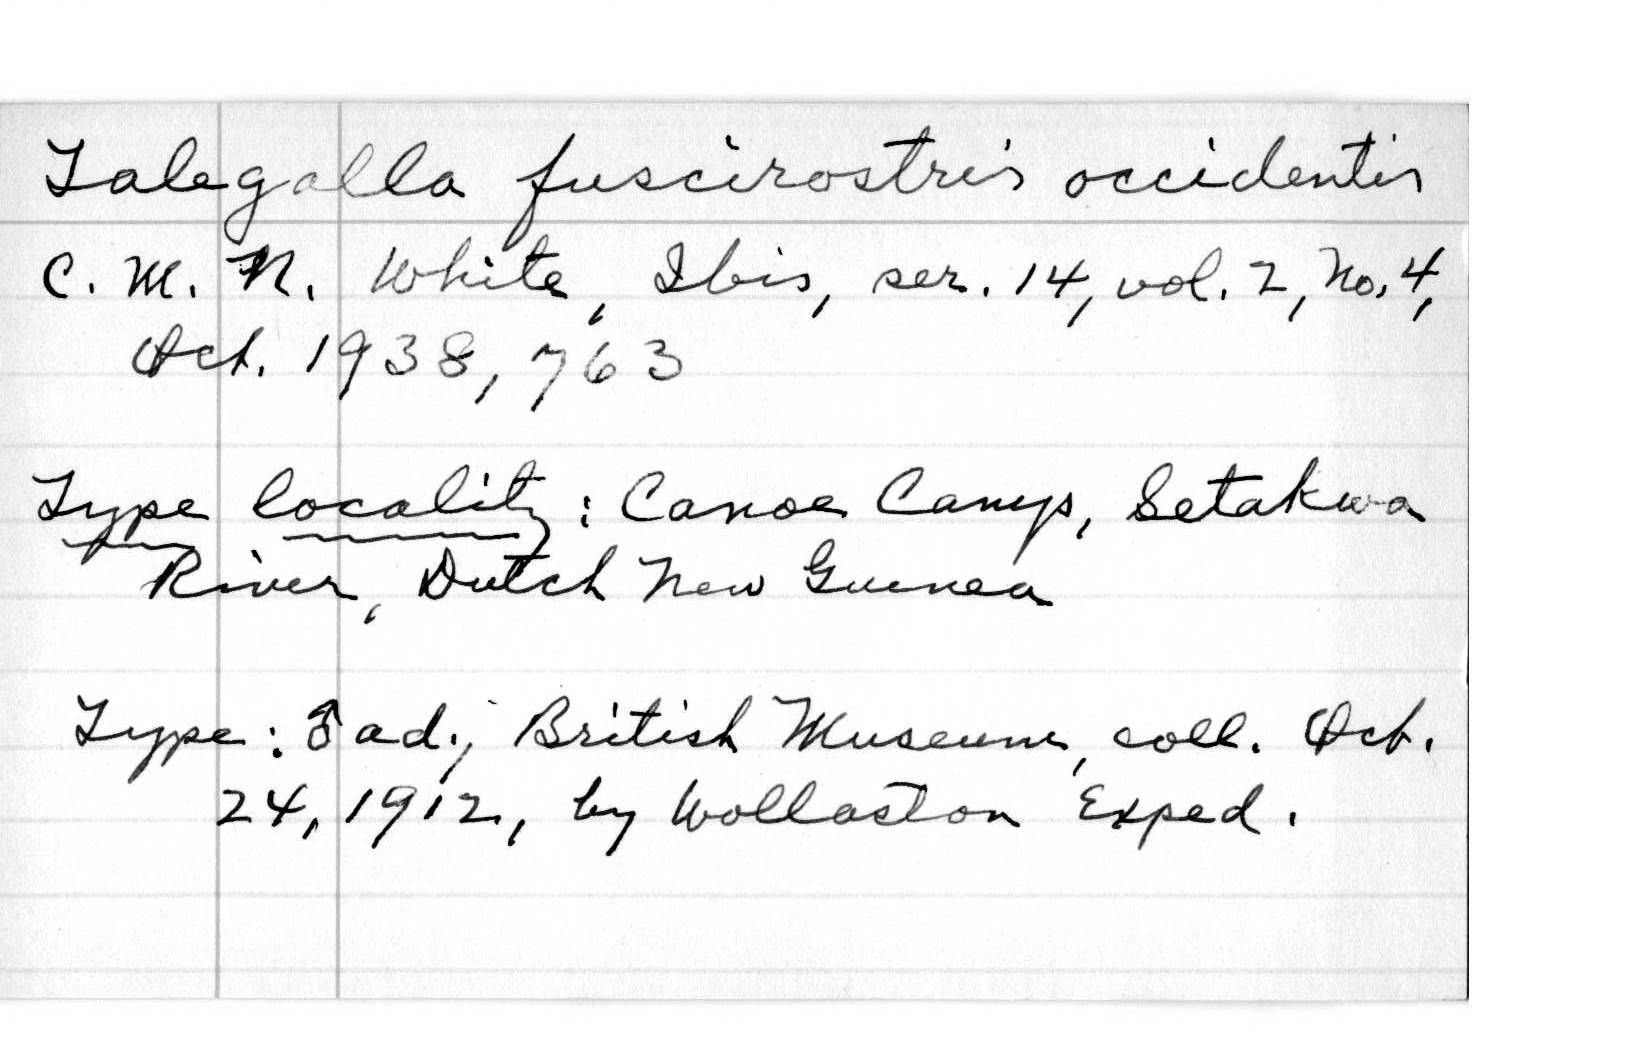 Talegalla fuscirostris occidentis
C. M. N. White, Ibis, ser. 14, vol. 2, No. 4,
Oct. 1938, 763
Type locality: Canoe Camp, Setakwa
River, Dutch New Guinea
Type: ♂ ad.; British Museum, coll. Oct.
24, 1912, by Wollaston Exped.